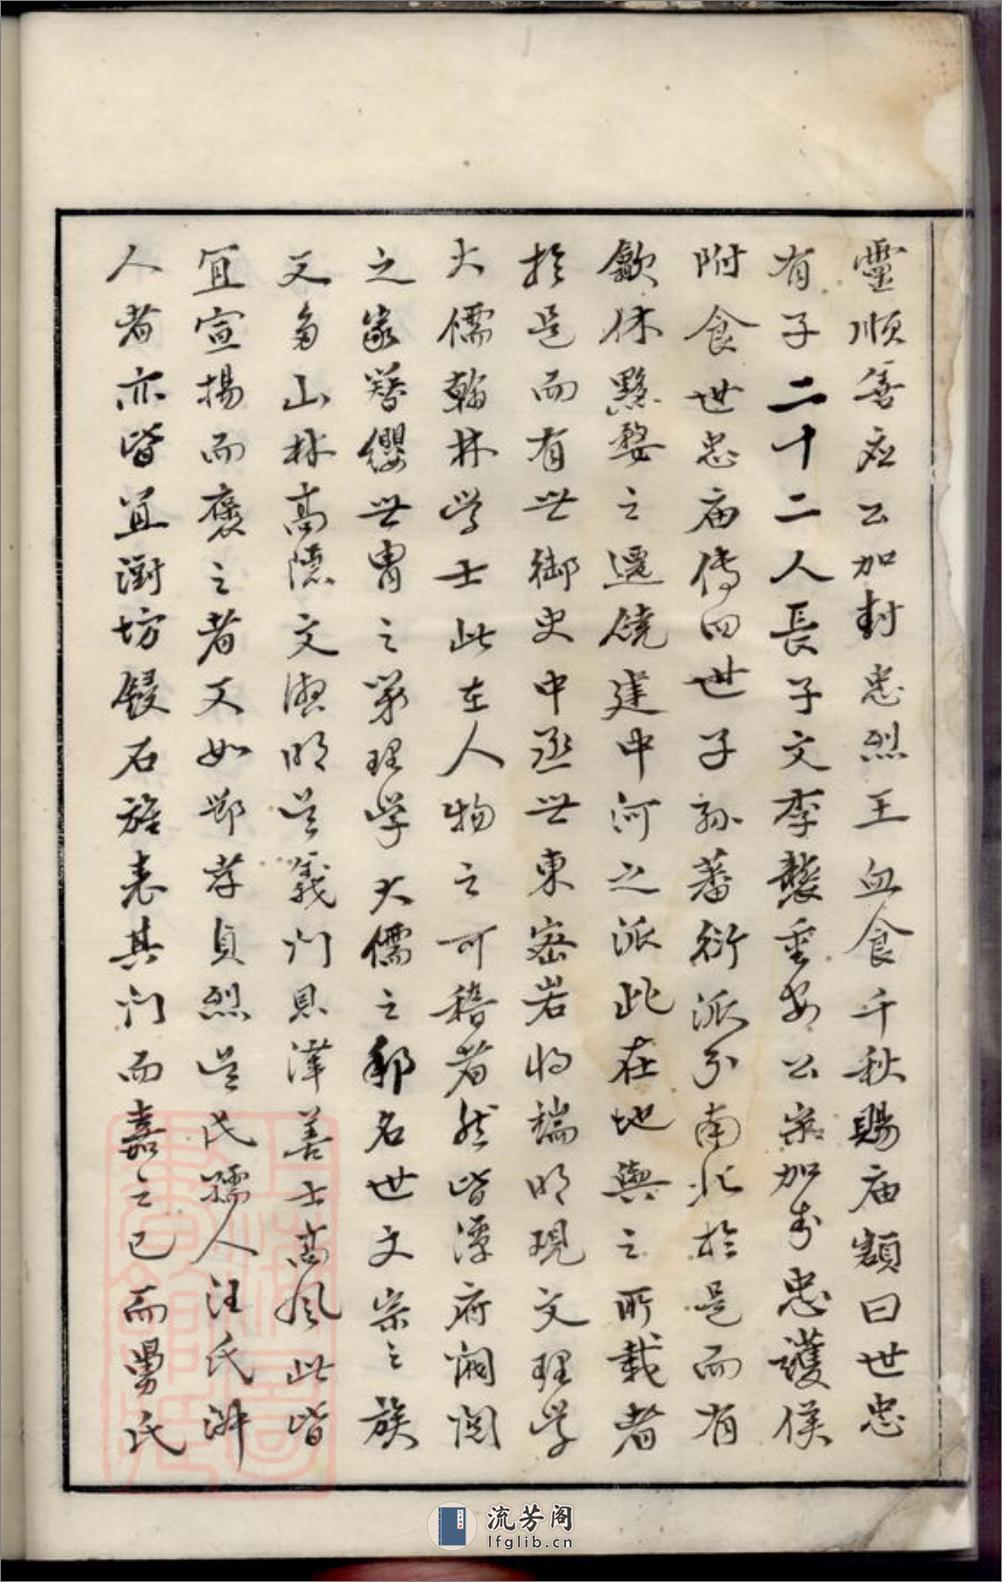 靈順善应公加封忠烈王血食千秋賜庙額曰世忠
有子二十二人長子文李襲重安公宗加封忠護侯
附食世忠庙傳四世子孫蕃衍派分南北於是而有
歙休黟婺之遷饒建中河之派此在地輿之所載者
於是而有世御史中丞世東密岩将端明現文理学
大儒翰林学士此在人物之可稽者然皆潭府阀阅
之家簪纓世胄之第理学大儒之鄉名世文宗之族
又多山林高隱文德明道義門良澤善士高风此皆
宜宣揚而褒之者又如鄧孝貞烈吳氏孺人汪氏
人者亦皆宜樹坊鋟石旌表其門而嘉之已而曼氏
流芳阁
lfglib.cn